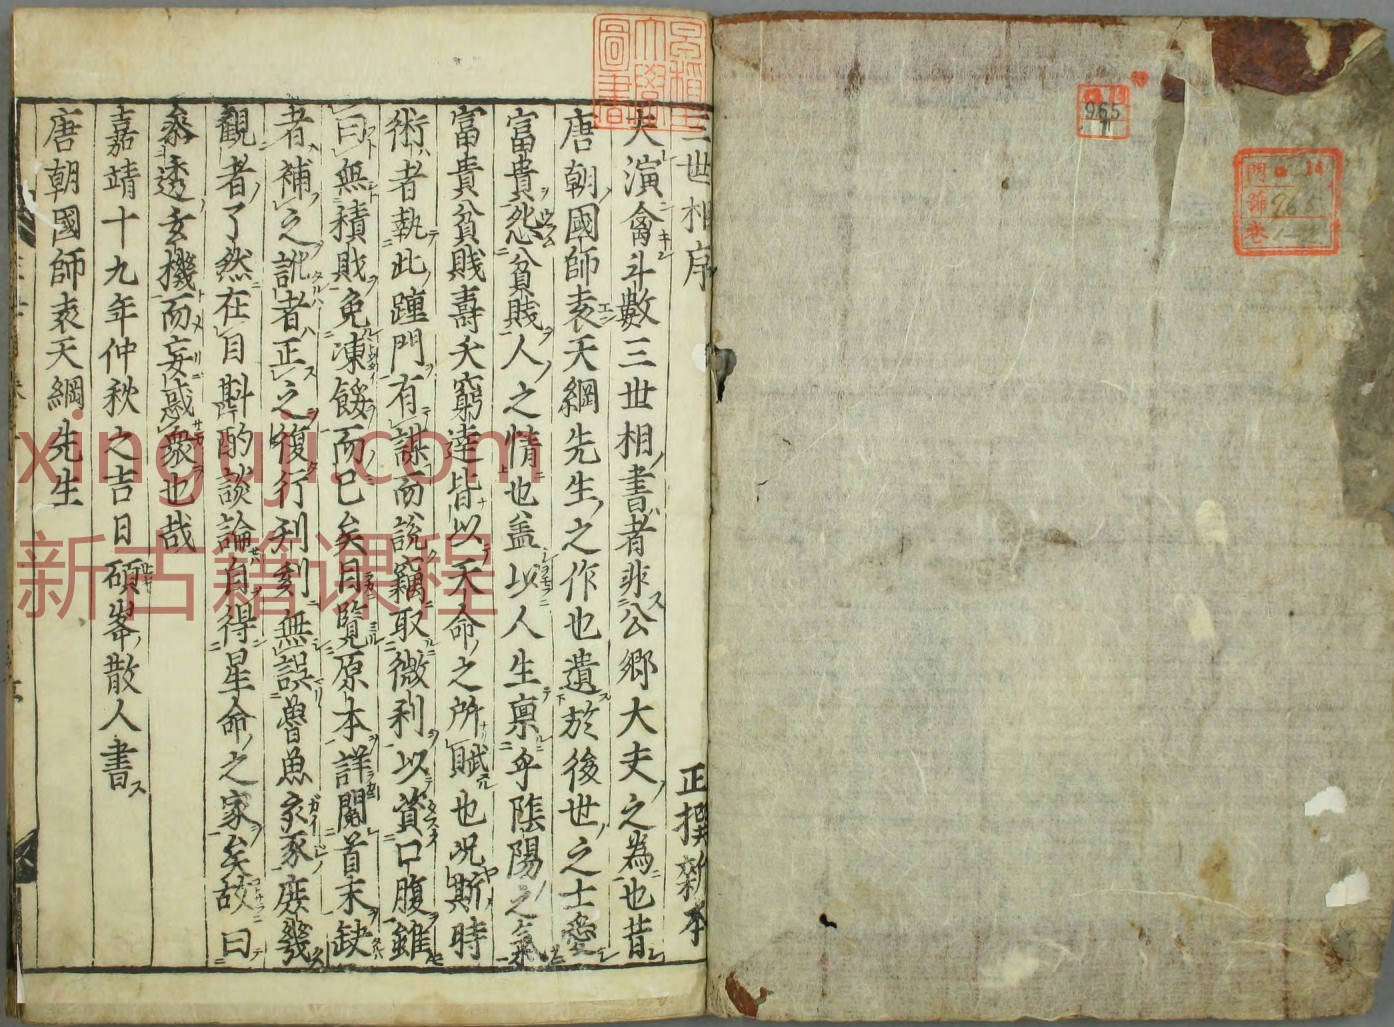 三世相序 正撰新本
大演禽斗數三世相書者非公鄉大夫之為也昔
唐朝國師袁天綱先生之作也遺於後世之士愛
富貴怨貧賎人之情也盖以人生禀乎陰陽之氣
富貴貧賎壽夭窮達皆以天命之所賦也况斯時
術者執此踵門有謀而說竊取微利以資口腹雖
曰無積財免凍餒而已矣目覽原本詳閱首末缺
者補之訛者正之復行刋刻無誤魯魚亥豕庻幾
觀者了然在目斟酌談論自得星命之家矣故曰
叅透玄機而妄惑衆也哉
嘉靖十九年仲秋之吉日碩峯散人書
唐朝國師袁天綱先生
早稻田大學圖書
965
1
門
號 965
卷 1
xinguji.com
新古籍课程